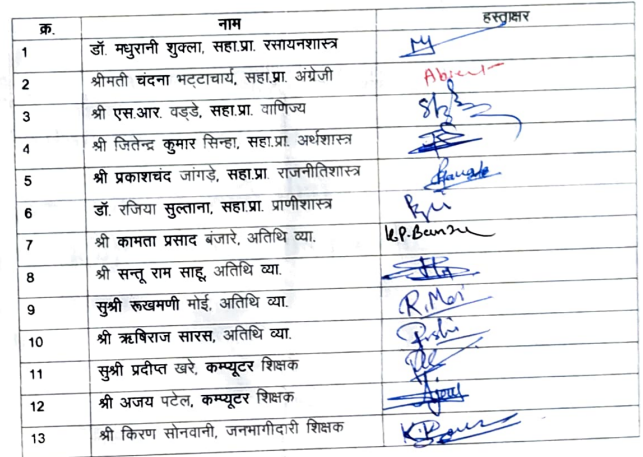 क्र. नाम हस्ताक्षर
1 डॉ. मधुरानी शुक्ला, सहा.प्रा. रसायनशास्त्र
2 श्रीमती चंदना भट्टाचार्य, सहा.प्रा. अंग्रेजी Absent
3 श्री एस.आर. वड्डे, सहा.प्रा. वाणिज्य
4 श्री जितेन्द्र कुमार सिन्हा, सहा.प्रा. अर्थशास्त्र
5 श्री प्रकाशचंद जांगड़े, सहा.प्रा. राजनीतिशास्त्र
6 डॉ. रजिया सुल्ताना, सहा.प्रा. प्राणीशास्त्र
7 श्री कामता प्रसाद बंजारे, अतिथि व्या.
8 श्री सन्तू राम साहू, अतिथि व्या.
9 सुश्री रूखमणी मोई, अतिथि व्या. R.Moi
10 श्री ऋषिराज सारस, अतिथि व्या.
11 सुश्री प्रदीप्त खरे, कम्प्यूटर शिक्षक
12 श्री अजय पटेल, कम्प्यूटर शिक्षक
13 श्री किरण सोनवानी, जनभागीदारी शिक्षक